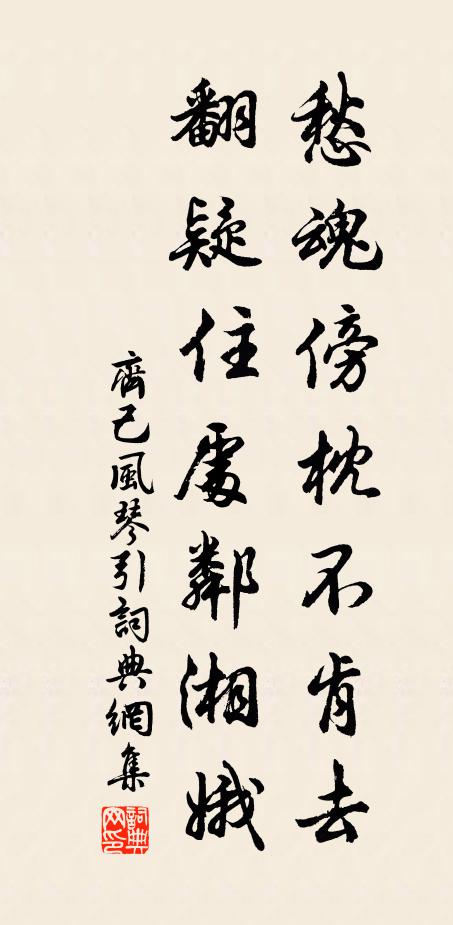 愁魂傍枕不肯去
翻疑住處鄰湘娥
齊己風琴引詞典網集
詞典
网印